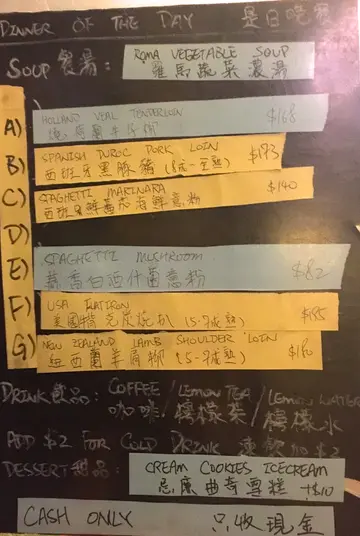 DINNER OF THE DAY 是日晚餐
SOUP 餐湯: ROMA VEGETABLE SOUP
羅馬蔬菜濃湯
A) HOLLAND VEAL TENDERLOIN $168
B) SPANISH DUROC PORK LOIN $193
西班牙黑豚豬 (8成-全熟)
C) SPAGHETTI MARINARA $140
D)
E) SPAGHETTI MUSHROOM $82
白酒什菌意粉
F) USA FLATIRON $185
美國 炭燒扒 (5-7成熟)
G) NEW ZEALAND LAMB SHOULDER LOIN
紐西蘭羊肩柳 (5-7成熟)
DRINK 飲品: COFFEE / LEMON TEA / LEMON WATER
咖啡 檸檬茶 檸檬水
ADD $2 FOR COLD DRINK 凍飲加$2
DESSERT 甜品: CREAM COOKIES ICECREAM
忌廉曲奇雪糕 +$10
CASH ONLY 只收現金